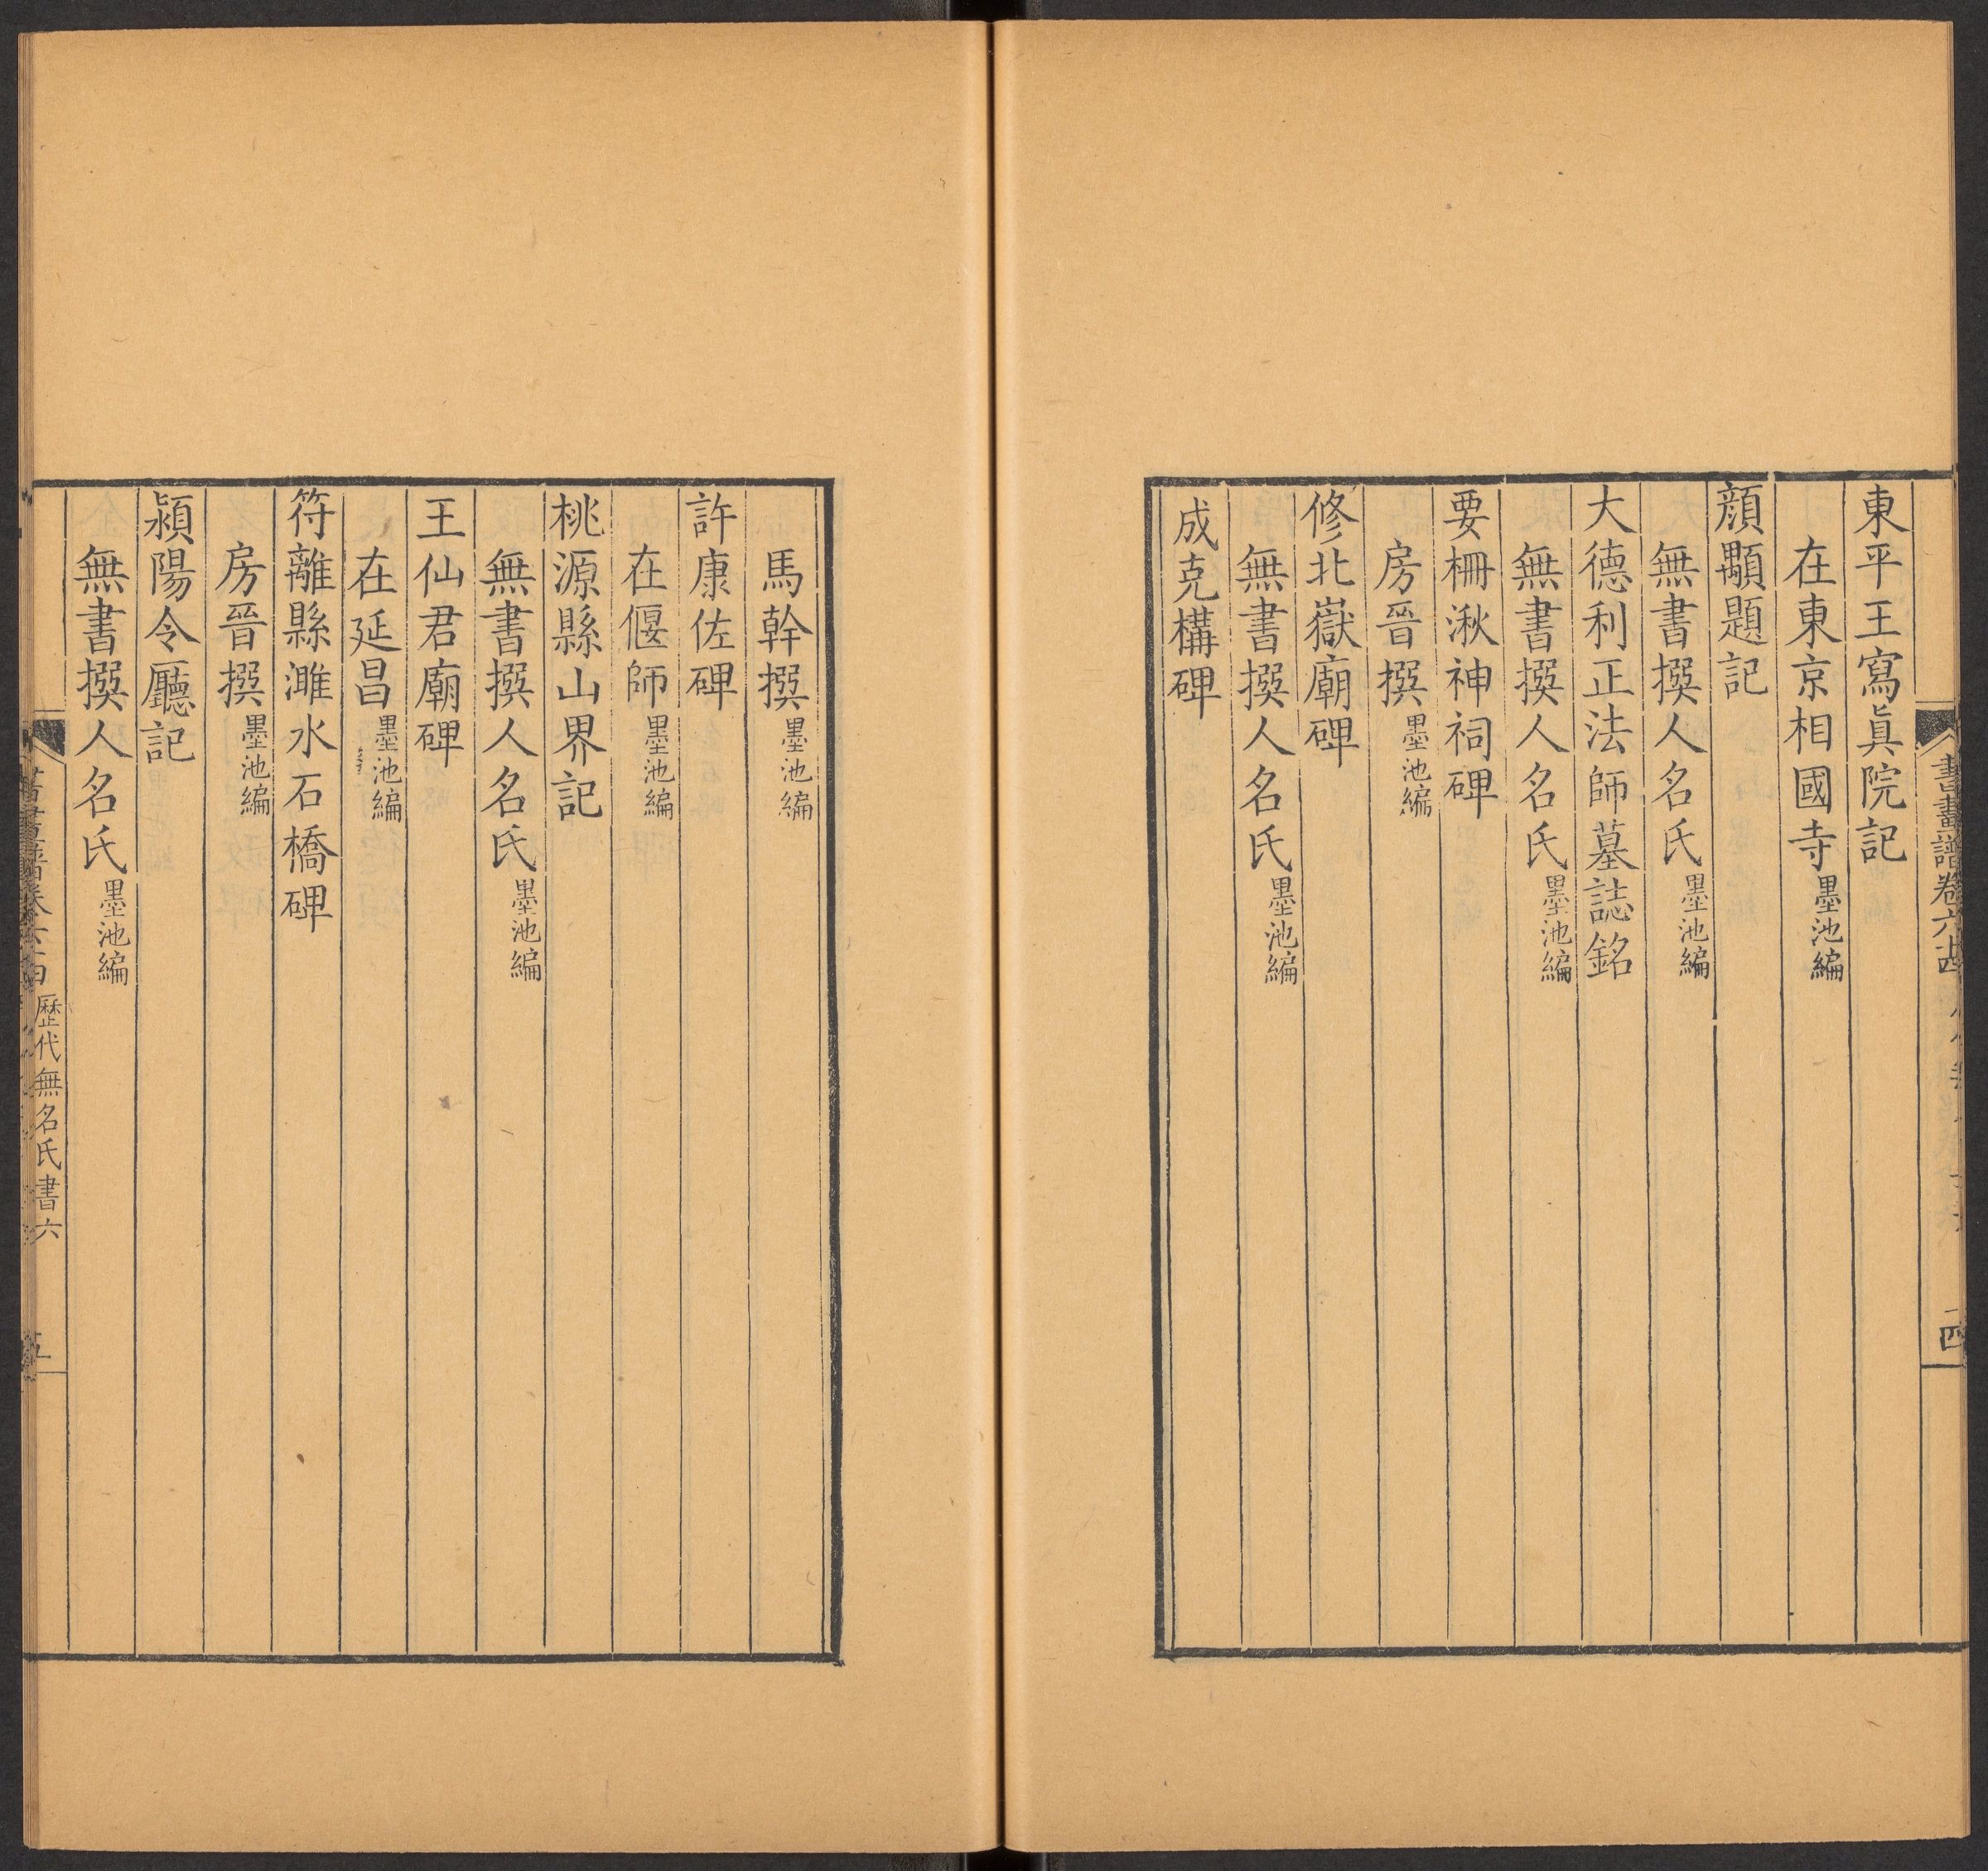 書畫譜卷六十四
四
東平王寫眞院記
在東京相國寺墨池編
顏顒題記
無書撰人名氏墨池編
大德利正法師墓誌銘
無書撰人名氏墨池編
要柵湫神祠碑
房晉撰墨池編
修北嶽廟碑
無書撰人名氏墨池編
成克構碑
馬幹撰墨池編
許康佐碑
在偃師墨池編
桃源縣山界記
無書撰人名氏墨池編
王仙君廟碑
在延昌墨池編
符離縣濉水石橋碑
房晉撰墨池編
潁陽令廳記
無書撰人名氏墨池編
歷代無名氏書六
五